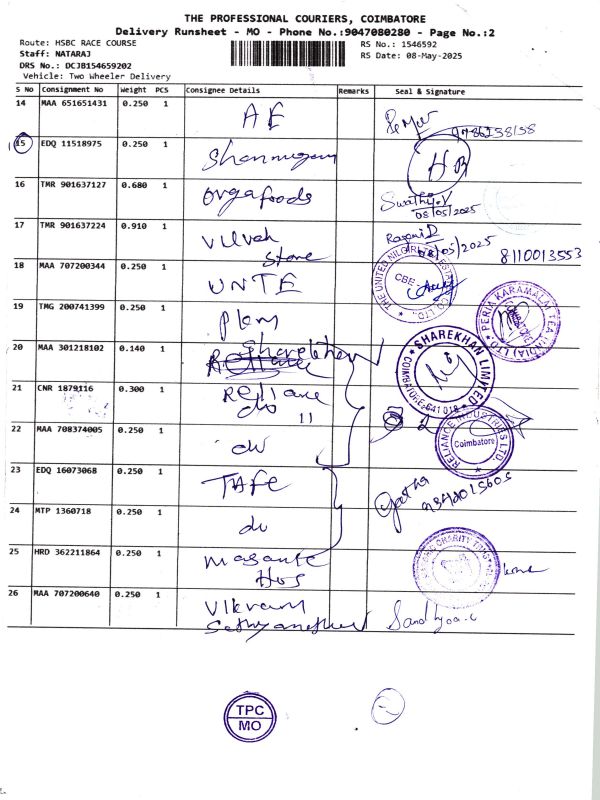 THE PROFESSIONAL COURIERS, COIMBATORE
Delivery Runsheet - MO - Phone No.:9047080280 - Page No.:2
Route: HSBC RACE COURSE
RS No.: 1546592
Staff: NATARAJ
RS Date: 08-May-2025
DRS No.: DCJB154659202
Vehicle: Two Wheeler Delivery
S No Consignment No Weight PCS Consignee Details Remarks Seal & Signature
14 MAA 651651431 0.250 1 AE
15 EDQ 11518975 0.250 1 Shanmugam
16 TMR 901637127 0.680 1 Orgafoods Swathy.V
08/05/2025
17 TMR 901637224 0.910 1 Ranjani D
08/05/2025 8110013553
Stone
18 MAA 707200344 0.250 1 UNTE
THE UNITED NILGIRI TEA ESTATES CO. LTD.
CBE
19 TMG 200741399 0.250 1
PERIA KARAMALAI TEA (INDIA) LTD.
20 MAA 301218102 0.140 1 Sharekhan
SHAREKHAN LIMITED
COIMBATORE-641 018
21 CNR 1879116 0.300 1 Reliance
do 11
22 MAA 708374005 0.250 1 do
RELIANCE INDUSTRIES LTD
Coimbatore
23 EDQ 16073068 0.250 1 TAFE
24 MTP 1360718 0.250 1 do
25 HRD 362211864 0.250 1
Hos
CHARITY TRUST
26 MAA 707200640 0.250 1 Vikram Sandhya.c
TPC
MO